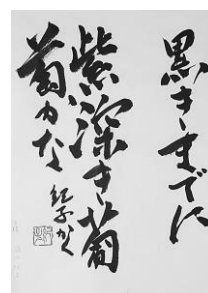 黒きまでに
紫深き葡
萄かな
紀子かく